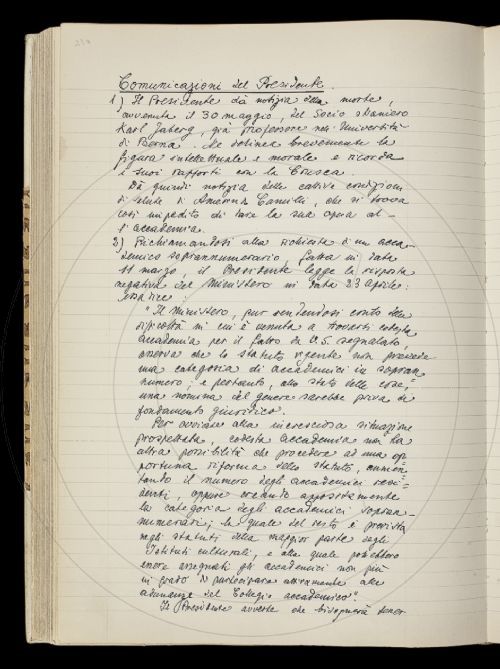 Comunicazioni del Presidente.
1) Il Presidente dà notizia della morte,
avvenuta il 30 maggio, del Socio straniero
Karl Jaberg, già professore nell'Università
di Berna. Ne delinea brevemente la
figura intellettuale e morale e ricorda
i suoi rapporti con la Crusca.
Dà quindi notizia delle cattive condizioni
di salute di Amerindo Camilli, che si trova
così impedito di dare la sua opera al-
l'accademia.
2) Richiamandosi alla richiesta di un acca-
demico soprannumerario, fatta in data
11 marzo, il Presidente legge la risposta
negativa del Ministero in data 23 aprile:
essa dice:
"Il Ministero, pur rendendosi conto delle
difficoltà in cui è venuta a trovarsi codesta
Accademia per il fatto da V.S. segnalato,
osserva che lo statuto vigente non prevede
una categoria di accademici in sopran
numero; e pertanto, allo stato delle cose,
una nomina del genere sarebbe priva di
fondamento giuridico.
Per ovviare alla incresciosa situazione
prospettata, codesta Accademia non ha
altra possibilità che procedere ad una op
portuna riforma dello statuto, aumen-
tando il numero degli accademici resi-
denti, oppure creando appositamente
la categoria degli accademici sopran-
numerari; la quale del resto è prevista
negli statuti della maggior parte degli
Istituti culturali, e alla quale potrebbero
essere assegnati gli accademici non più
in grado di partecipare attivamente alle
adunanze del Collegio accademico".
Il Presidente avverte che bisognerà tener